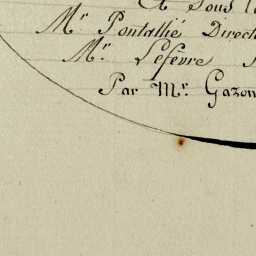 Et Sous l
Mr. Pontallié Direct
Mr. Lefèvre
Par Mr. Gazon